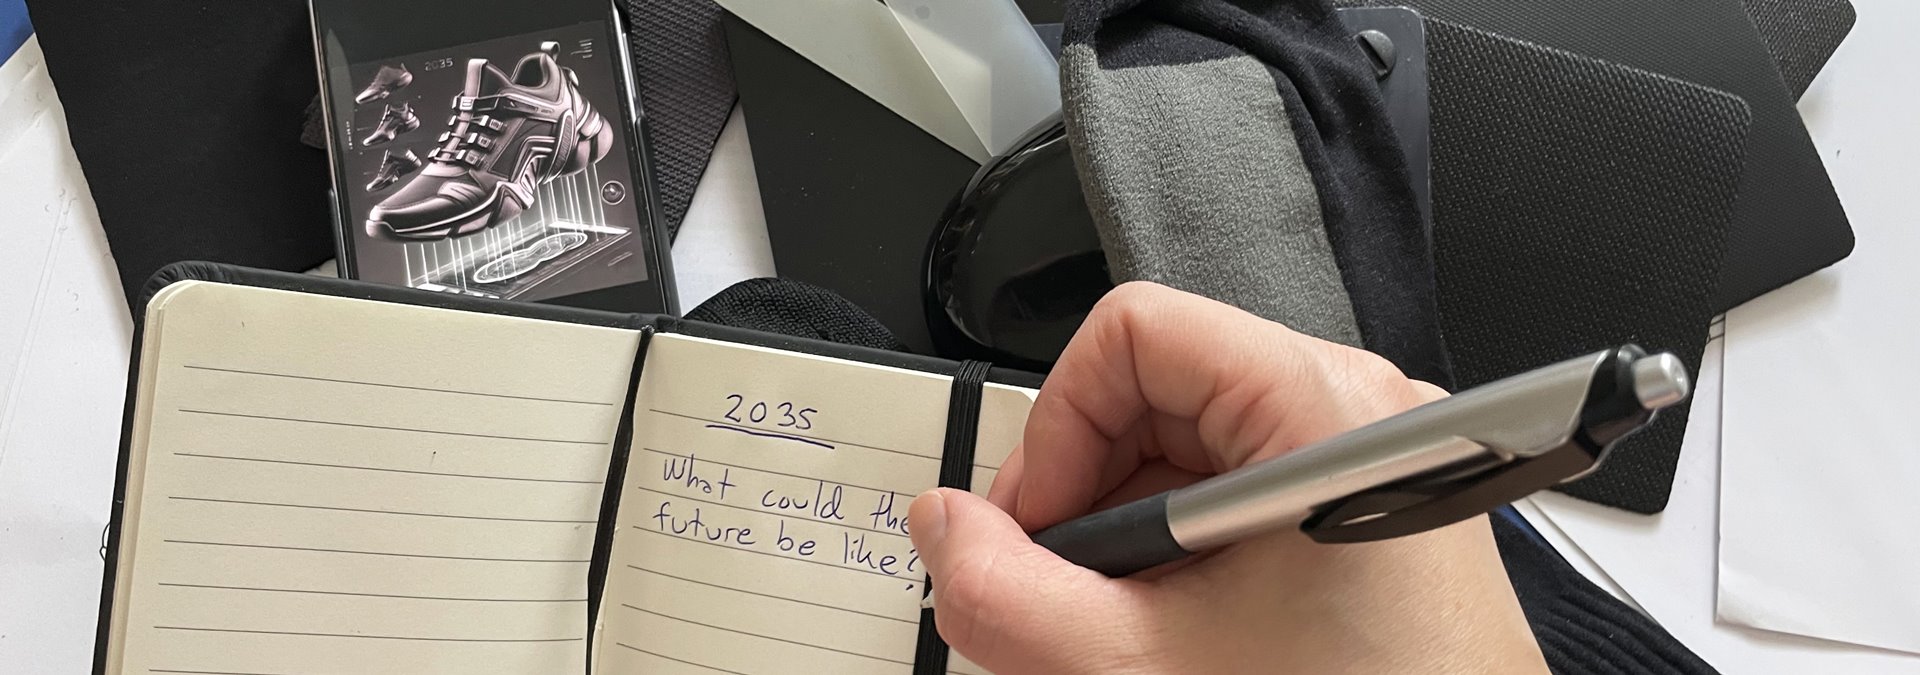 2035
2035
What could the
future be like?